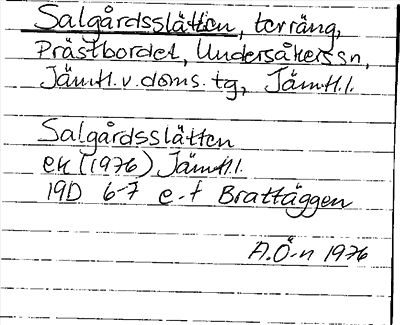 Salgårdsslätten, terräng,
Prästbordet, Undersåkers sn,
Jämtl. v. doms. tg, Jämtl. l.
Salgårdsslätten
ek (1976) Jämtl. l.
19D 6-7 e-f Brattäggen
A. Ö-n 1976